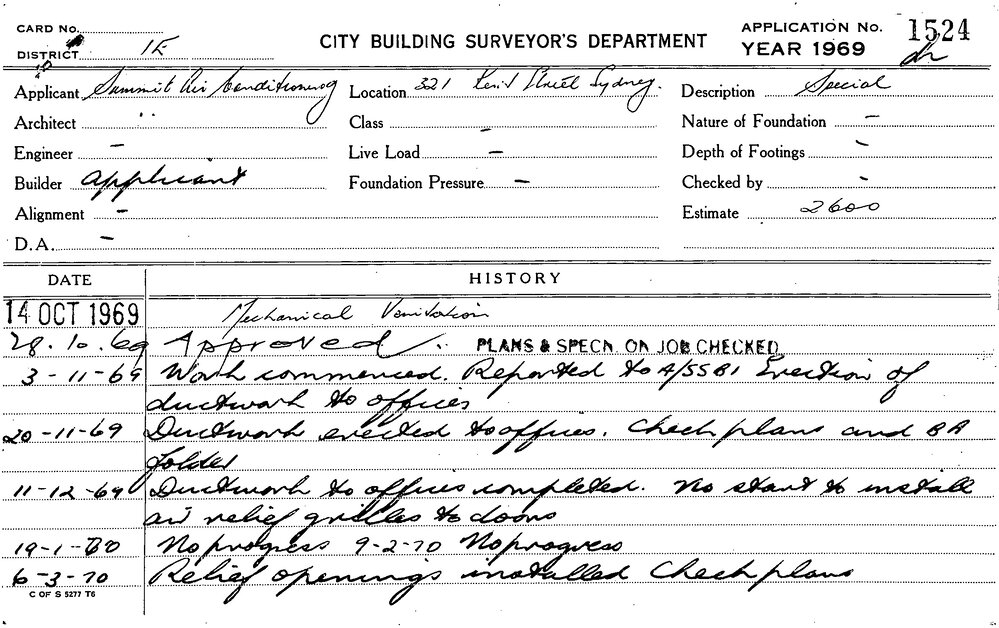 CARD No.
DISTRICT 1E
CITY BUILDING SURVEYOR'S DEPARTMENT
APPLICATION No. 1524
YEAR 1969
Applicant Summit Air Conditioning Location 321 Kent Street Sydney. Description Special
Architect " Class - Nature of Foundation -
Engineer - Live Load - Depth of Footings -
Builder applicant Foundation Pressure - Checked by -
Alignment - Estimate 2600
D.A. -
DATE HISTORY
14 OCT 1969 Mechanical Ventilation
28.10.69 Approved. PLANS & SPECN. ON JOB CHECKED
3-11-69 Work commenced. Reported to A/SSBI Erection of
ductwork to offices
20-11-69 Ductwork erected to offices. Check plans and BA
folder
11-12-69 Ductwork to offices completed. No start to install
air relief grilles to doors
19-1-70 No progress 9-2-70 No progress
6-3-70 Relief openings installed Check plans
C OF S 5277 T6